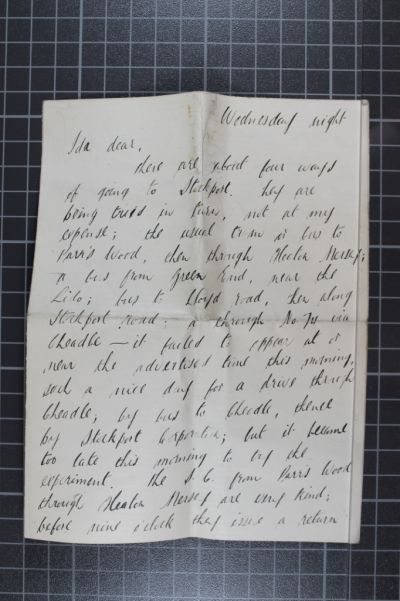 Wednesday night
Ida dear,
there are about four ways
of going to Stockport. They are
being tried in turn, not at my
expense; the usual is bus to
Parrs Wood, then through Heaton Mersey;
a bus from Green End, near the
Lido; bus to Lloyd road, then along
Stockport road; a through No 74 via
Cheadle — it failed to appear at or
near the advertised time this morning,
such a nice day for a drive through
Cheadle; by bus to Cheadle, thence
by Stockport Corporation; but it became
too late this morning to try the
experiment. The S. C. from Parrs Wood
through Heaton Mersey are very kind;
before nine o'clock they issue a return